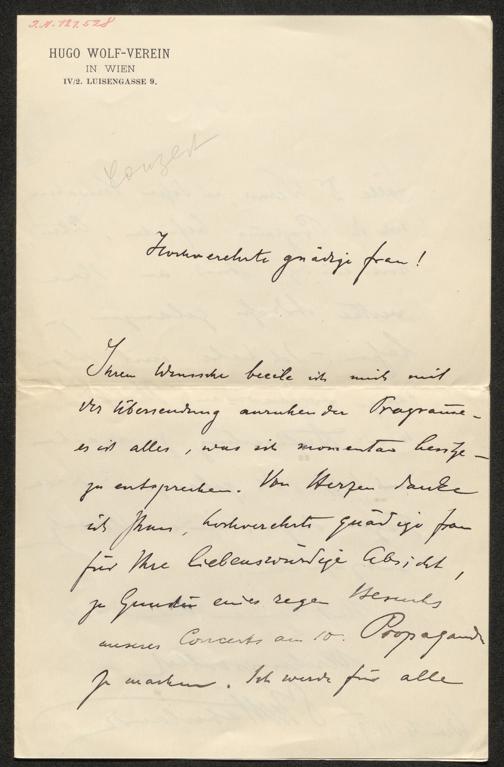 J.N. 127.528
HUGO WOLF-VEREIN
IN WIEN
IV/2. LUISENGASSE 9.
Conzert
Hochverehrte gnädige Frau!
Ihrem Wunsche beeile ich mich mit
der Übersendung anruhender Programme –
es ist alles, was ich momentan besitze –
zu entsprechen. Von Herzen danke
ich Ihnen, hochverehrte gnädige Frau
für Ihre liebenswürdige Absicht,
zu Gunsten eines regen Besuchs
unseres Concerts am 10. Propaganda
zu machen. Ich werde für alle